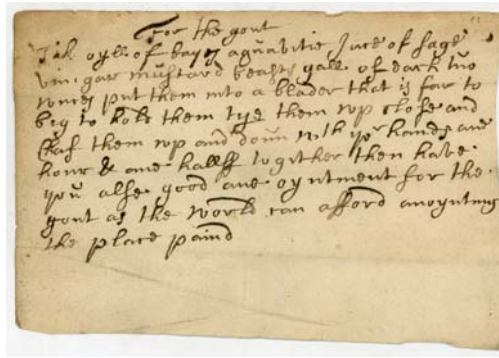 For the gout
Tak oyll of bayes aquavitie Juce of sage
vin:gar mustard beasts gall of each tuo
unces put them into a blader that is far to
big to hold them tye them vp close and
chaf them vp and doun with yor hands ane
hour & ane hallff together then have
you alse good ane oyntment for the
gout as the world can afford anoynting
the place paind